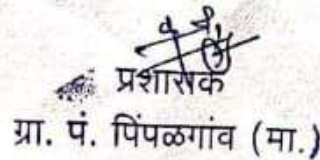 प्रशासक
ग्रा. पं. पिंपळगांव (मा.)